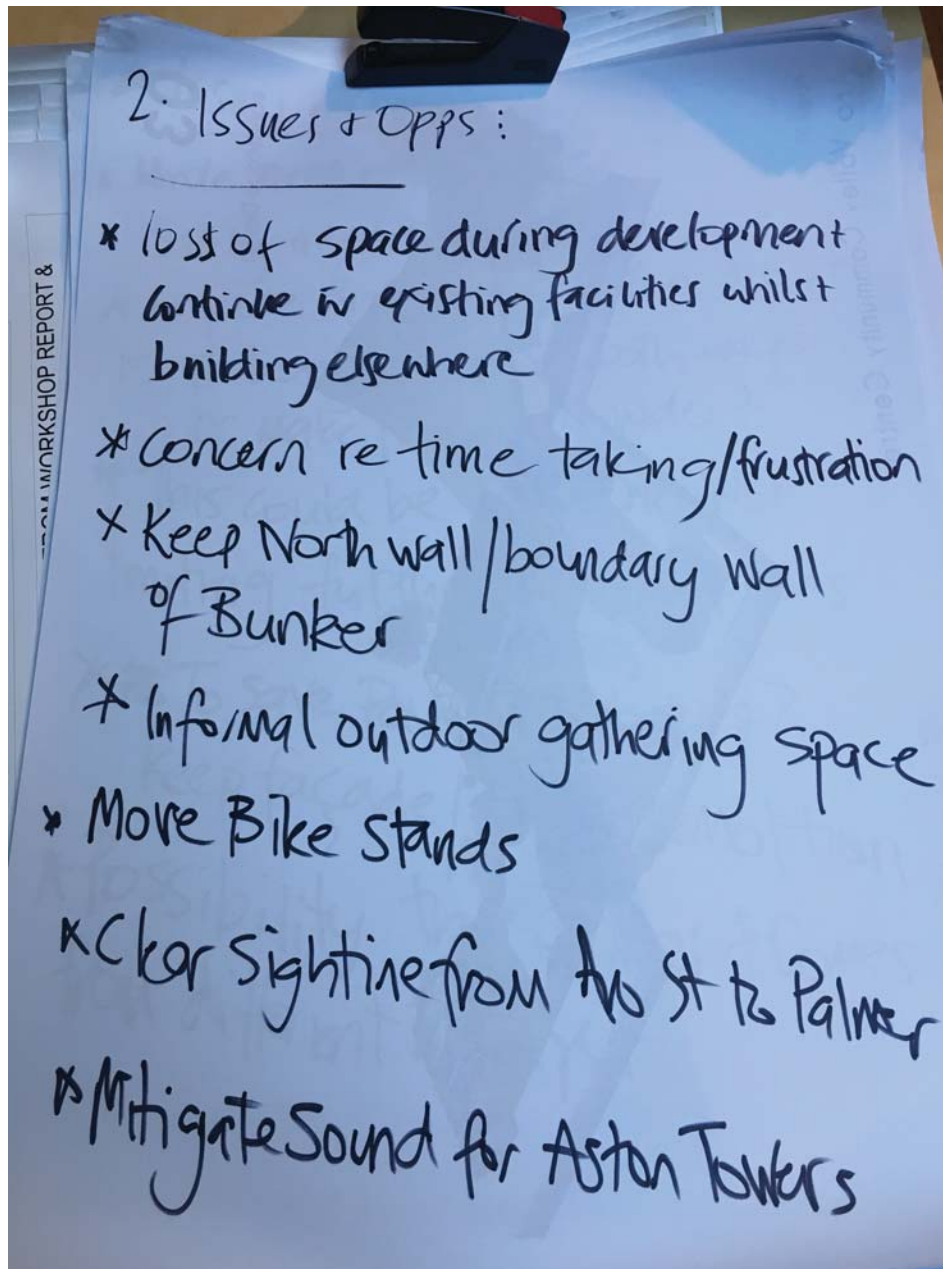 2. Issues + Opps :
* loss of space during development
continue in existing facilities whilst
building elsewhere
* Concern re time taking/frustration
* Keep North wall/boundary wall
of Bunker
* Informal outdoor gathering space
* Move Bike Stands
* Clear Sightine from St to Palmer
* Mitigate Sound for Aston Towers
WORKSHOP REPORT &